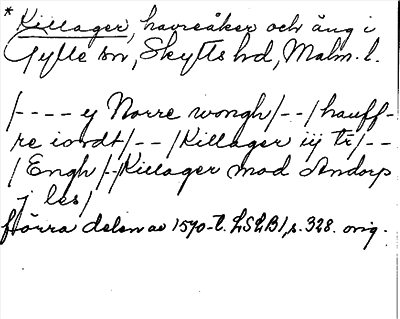 *Killager, havreåker och äng i
Gylle sn, Skytts hd, Malm. l.
/---- y Norre wongh/--/hauff-
re iordt/--/Killager iij tr/--
/Engh/-/Killager mod Andorp
j les/
förra delen av 1570-t. LSLB1, s. 328. orig.